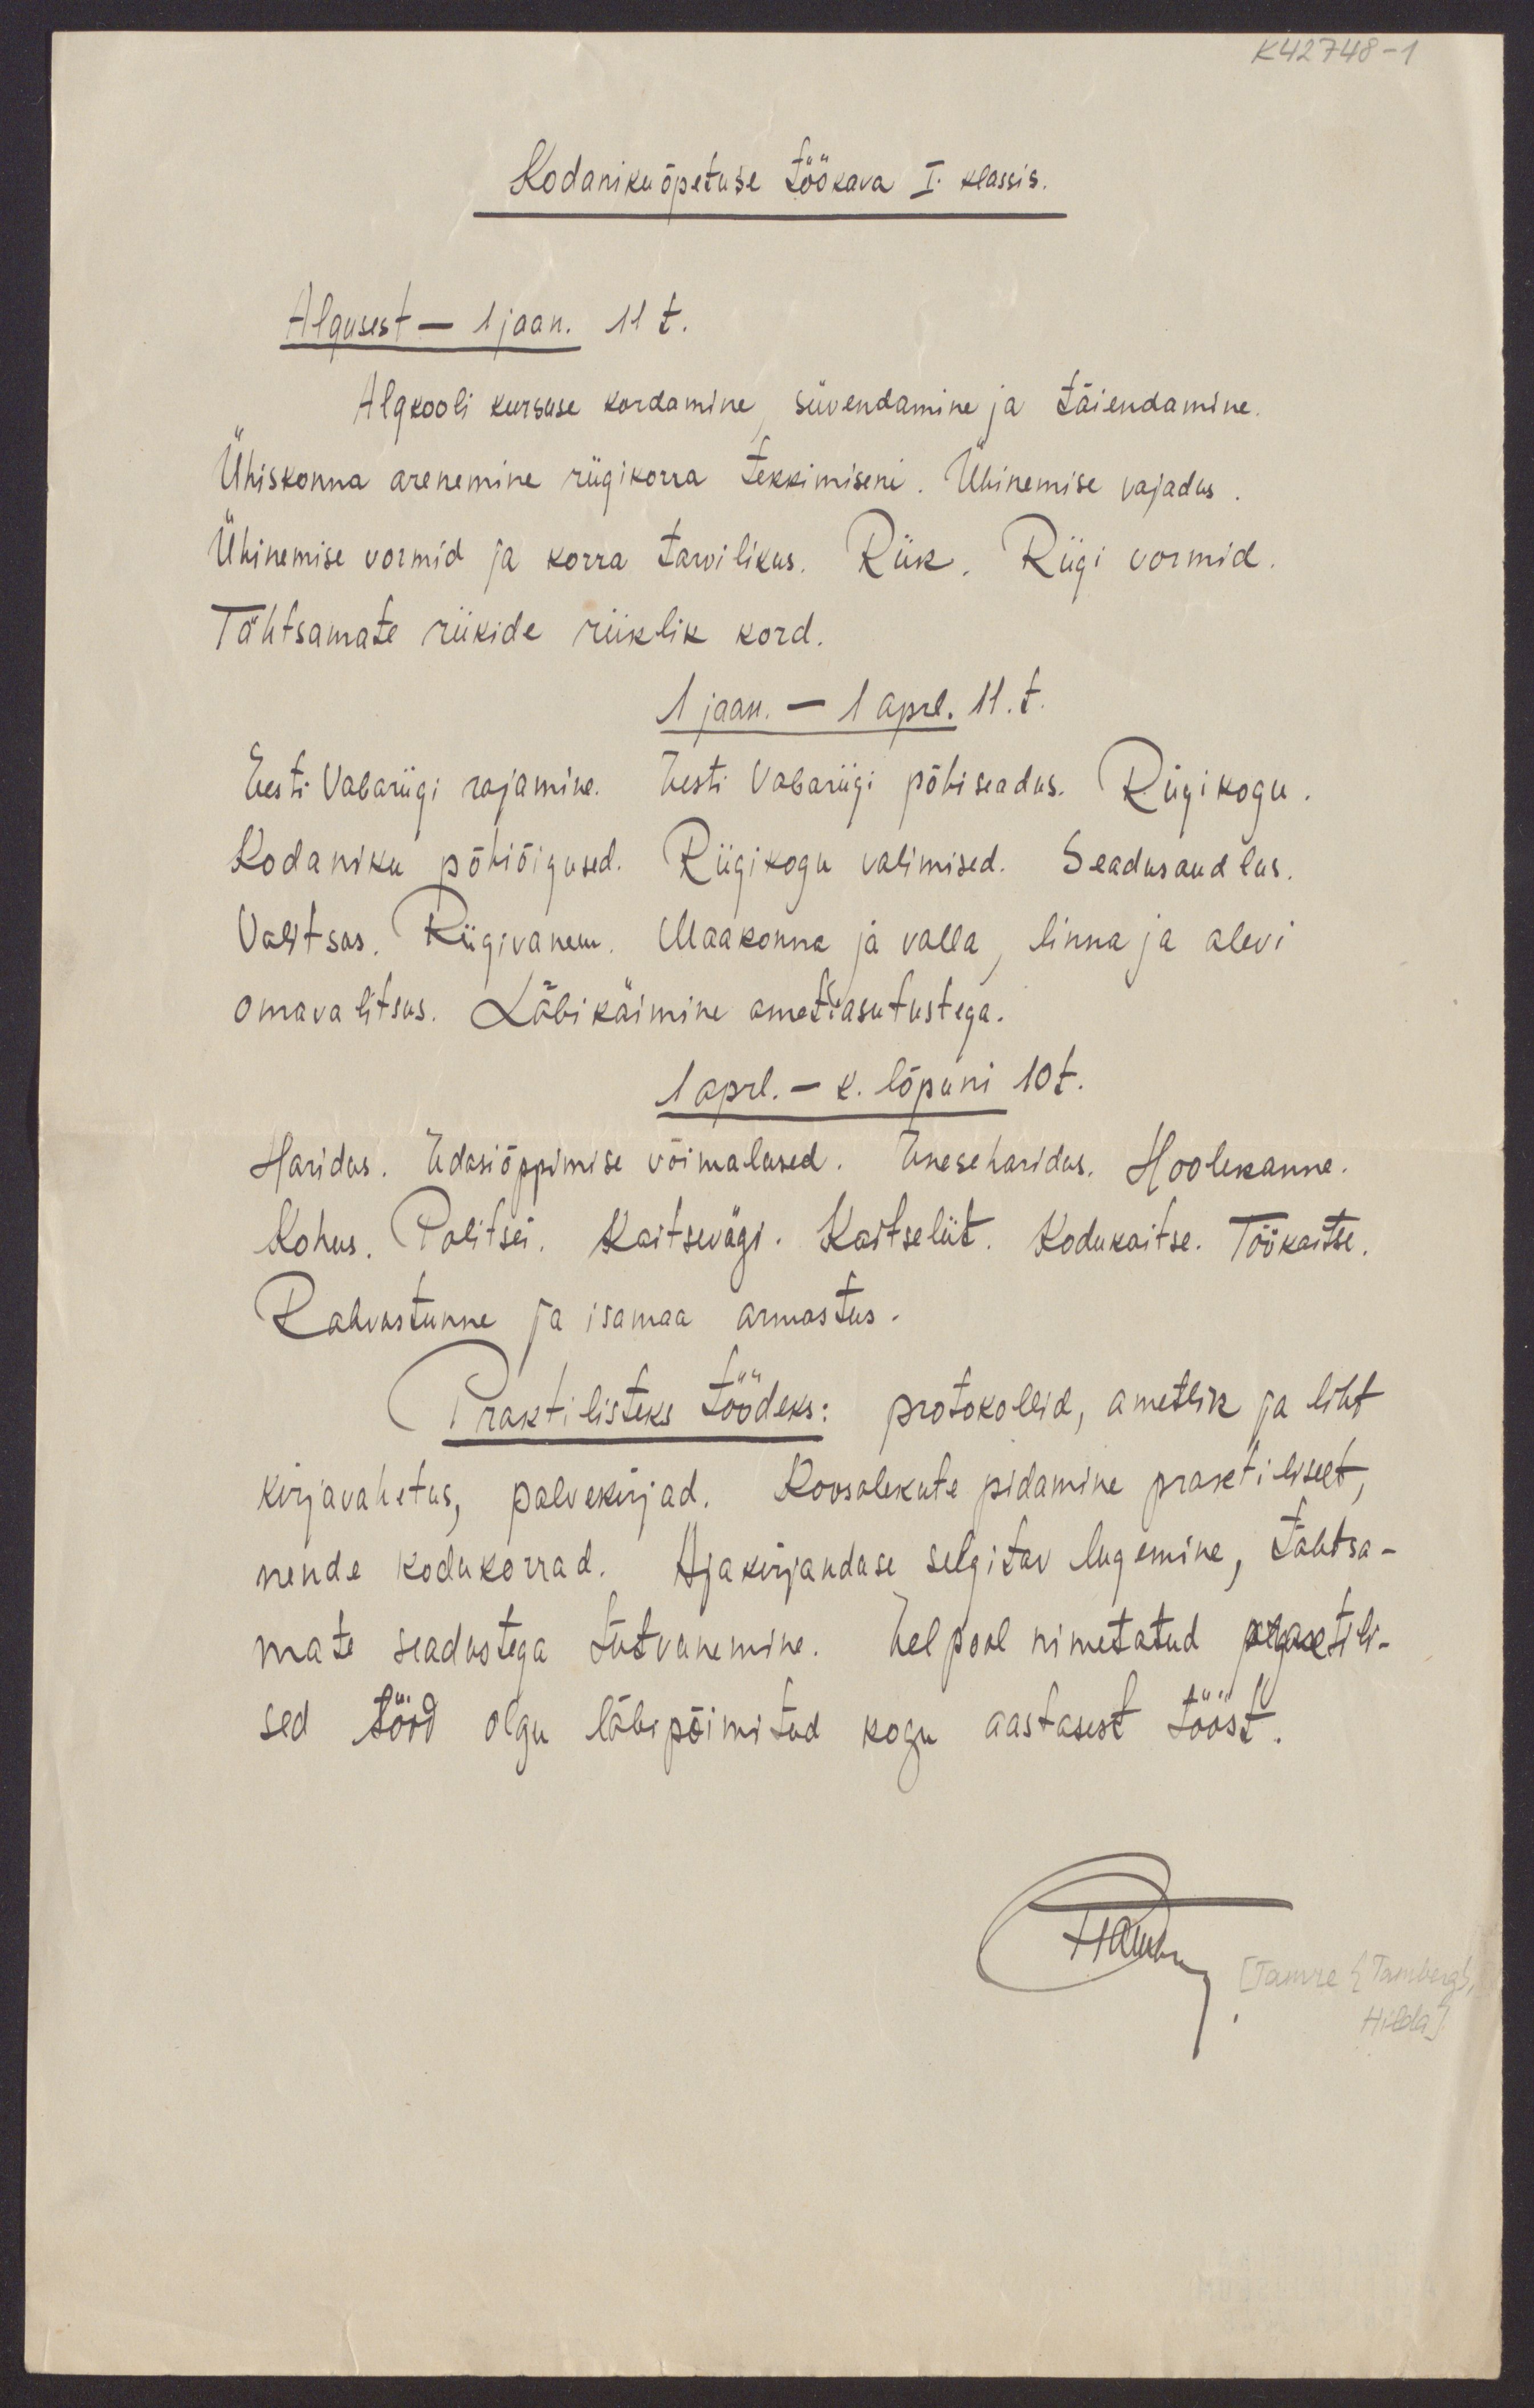 K42748-1
Kodanikuõpetuse töökava I. klassis.
Algusest — 1 jaan. 11 t.
Algkooli kursuse kordamine, süvendamine ja täiendamine.
Ühiskonna arenemine riigikorra tekkimiseni. Ühinemise vajadus.
Ühinemise vormid ja korra tarvilikus. Riik. Riigi vormid.
Tähtsamate riikide riiklik kord.
1 jaan. — 1 aprl. 11. t.
Eesti Vabariigi rajamine. Eesti Vabariigi põhiseadus. Riigikogu.
Kodaniku põhiõigused. Riigikogu valimised. Seadusandlus.
Valitsus. Riigivanem. Maakonna ja valla, linna ja alevi
omavalitsus. Läbikäimine ametiasutustega.
1 aprl. — k. lõpuni 10 t.
Haridus. Edasiõppimise võimalused. Eneseharidus. Hoolekanne.
Kohus. Politsei. Kaitsevägi. Kaitseliit. Kodukaitse. Töökaitse.
Rahvustunne ja isamaa armastus.
Praktilisteks töödeks: protokollid, ametlik ja liht
kirjavahetus, palvekirjad. Koosolekute pidamine praktiliselt,
nende kodukorrad. Ajakirjanduse selgitav lugemine, tähtsa-
mate seadustega tutvunemine. Eelpool nimetatud praktili-
sed tööd olgu läbipõimitud kogu aastasest tööst.
[Tamre {Tamberg},
Hilda]